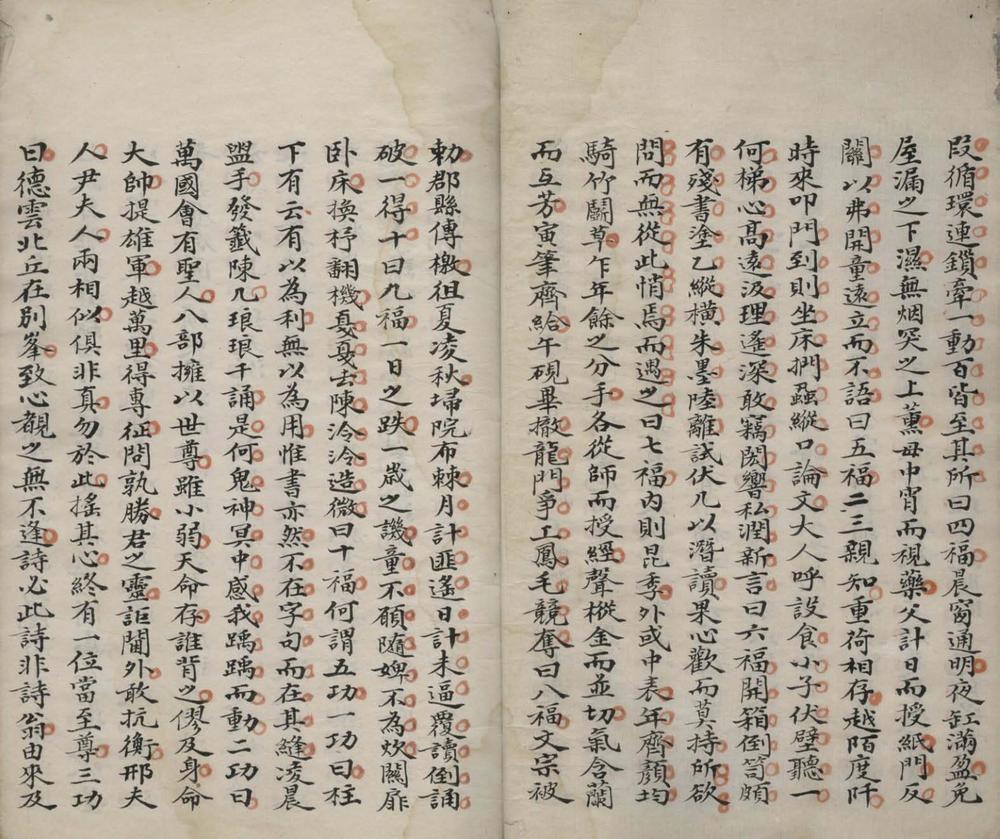 段循環連鎖牽一動百皆至其所曰四福晨窗通明夜缸滿盈免
屋漏之下濕無烟突之上薰母中宵而視藥父計日而授紙門反
關以弗開童遠立而不語曰五福二三親知重荷相存越陌度阡
時來叩門到則坐床捫蝨縱口論文大人呼設食小子伏壁聽一
何梯心高遠汲理遙深敢竊閎響私潤新言曰六福開箱倒笥頗
有殘書塗乙縱橫朱墨陸離試伏几以潛讀果心歡而莫持所欲
問而無從此悄焉而遇之曰七福內則昆季外或中表年齊顏均
騎竹鬭草乍年餘之分手各從師而授經聲樅金而並切氣含蘭
而互芳寅筆齊給午硯畢撤龍門爭工鳳毛競奪曰八福文宗被
勅郡縣傳檄徂夏凌秋埽院布棘月計匪遙日計未逼覆讀倒誦
破一得十曰九福一日之跌一歲之譏童不願隨婢不為炊關扉
卧床換杼翻機戛戛去陳泠泠造微曰十福何謂五功一功曰柱
下有云有以為利無以為用惟書亦然不在字句而在其縫凌晨
盥手發籤陳几琅琅千誦是何鬼神冥中感我踽踽而動二功曰
萬國會有聖人八部擁以世尊雖小弱天命存誰背之僇及身命
大帥提雄軍越萬里得專征問孰勝君之靈詎閫外敢抗衡邢夫
人尹夫人兩相似俱非真勿於此搖其心終有一位當至尊三功
曰德雲北丘在別峯致心覩之無不逢詩必此詩非詩翁由來及